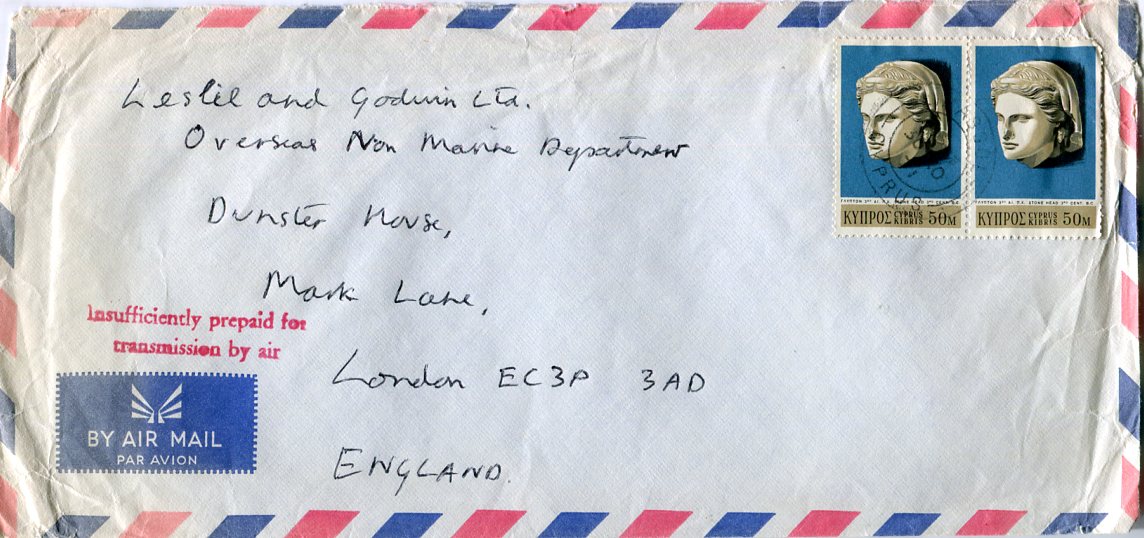 Leslie and Godwin Ltd.
Overseas Non Marine Department
Dunster House,
Mark Lane,
London EC3P 3AD
ENGLAND.
Insufficiently prepaid for
transmission by air
BY AIR MAIL
PAR AVION
STONE HEAD 3RD CENT. B.C.
ΚΥΠΡΟΣ CYPRUS KIBRIS 50M
STONE HEAD 3RD CENT. B.C.
ΚΥΠΡΟΣ CYPRUS KIBRIS 50M
PRUS